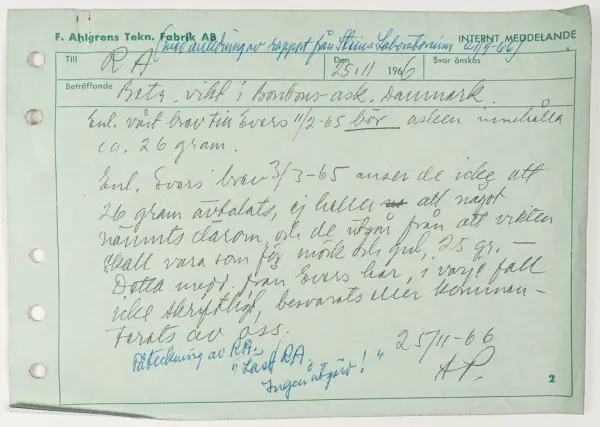 F. Ahlgrens Tekn. Fabrik AB
INTERNT MEDDELANDE
(med anledning av rapport från Steins Laboratorium 21/11-66)
Till RA
Den 25.11 1966
Svar önskas
Beträffande Betr. vikt i Bonbons-ask. Danmark.
Enl. vårt brev till Evers 11/2-65 bör asken innehålla
ca. 26 gram.
Enl. Evers' brev 3/3-65 anser de icke att
26 gram avtalats, ej heller att något
nämnts därom, och de utgår från att vikten
skall vara som för mörk och gul, 25 gr. —
Detta medd. från Evers har, i varje fall
icke skriftligt, besvarats eller kommen-
terats av oss.
25/11-66
AP.
Påteckning av RA.
"Läst RA.
Ingen åtgärd!"
2